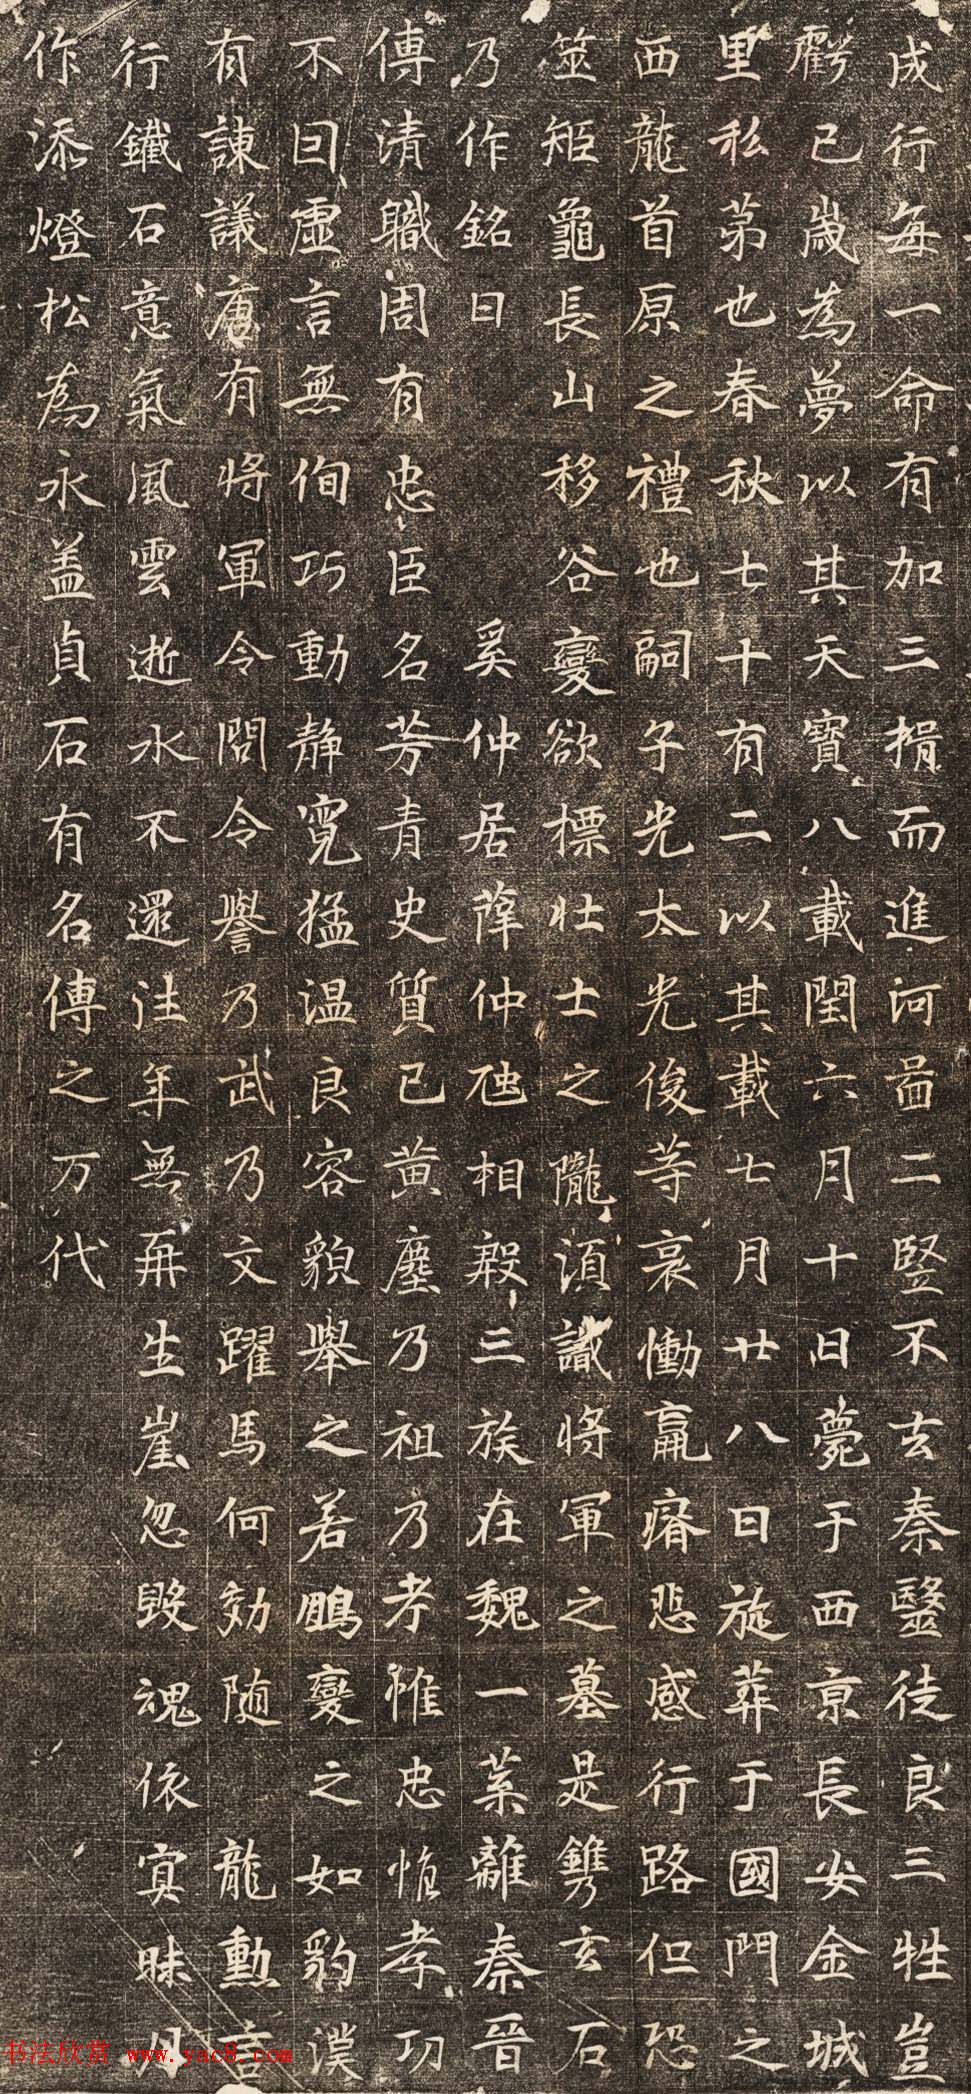 成行每一命有加三揖而進河啚二豎不去秦毉徒良三牲豈
虧已歲為夢以其天寶八載閏六月十日薨于西京長安金城
里私第也春秋七十有二以其載七月廿八日旋葬于國門之
西龍首原之禮也嗣子光太光俊等哀慟羸瘠悲感行路但恐
筮短龜長山移谷變欲標壯士之隴須識將軍之墓是鐫玄石
乃作銘曰 奚仲居薛仲虺相殷三族在魏一業離秦晉
傳清職周有忠臣名芳青史質已黃塵乃祖乃考惟忠惟孝功
不回虛言無侚巧動靜寬猛温良容貌舉之若鵬變之如豹漢
有諫議唐有將軍令問令譽乃武乃文躍馬何効随龍勳言
行鐵石意氣風雲逝水不還往年無再生崖忽毀魂依冥昧月
作添燈松為永盖貞石有名傳之万代
书法欣赏 www.yac8.com